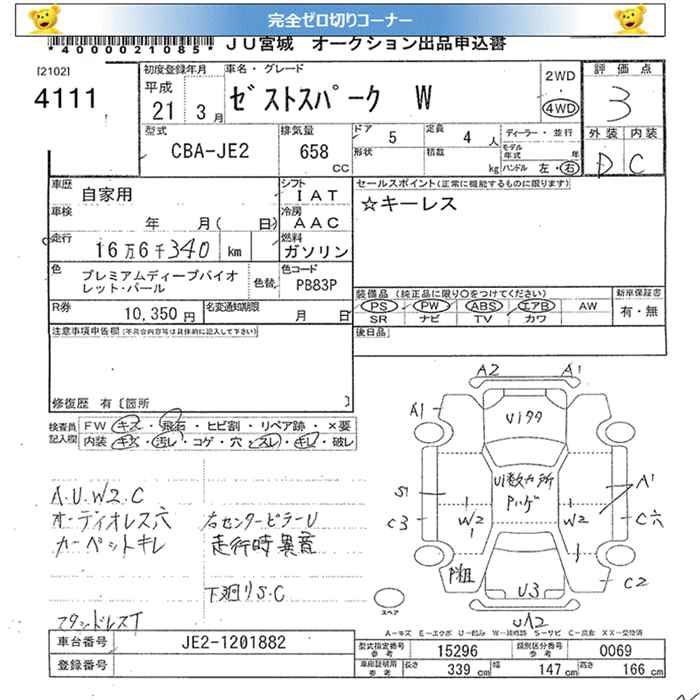 完全ゼロ切りコーナー
*40000021085* JU宮城 オークション出品申込書
[2102]
4111
初度登録年月
平成
21 3月
車名・グレード
ゼストスパーク W
2WD
4WD
評価点
3
外装 内装
D C
型式
CBA-JE2
排気量
658
CC
ドア 5
定員 4 人
形状
積載 kg
ディーラー・並行
モデル年式 年
ハンドル 左・右
車歴
自家用
車検
年 月( 日)
走行
16万6千340 km
シフト
IAT
冷房
AAC
燃料
ガソリン
色
プレミアムディープバイオ
レット・パール
色替
色コード
PB83P
R券
10,350 円
名変通知期限
月 日
セールスポイント(正常に機能するものに限ります)
☆キーレス
装備品(純正品に限り○をつけてください)
PS PW ABS エアB AW
SR ナビ TV カワ
新車保証書
有・無
後日品
注意事項申告欄(不具合内容等は具体的に記入して下さい)
修復歴 有〔箇所 〕
検査員記入欄
FW キズ・飛石・ヒビ割・リペア跡・×要
内装 キズ・汚レ・コゲ・穴・スレ・キレ・破レ
A.U.W2.C
オーディオレス穴
カーペットキレ
右センターピラーU
走行時異音
下廻りS.C
スタンドレスT
A2 A1
A1
Uｷｸｸ
S1
C3
W2
U数カ所
Pハゲ
W2
A1
C穴
C2
U3
UA2
スペア
A-キズ E-エクボ U-凹み W-補修跡 S-サビ C-腐食 XX-交換済
車台番号 JE2-1201882
登録番号
型式指定番号 参考 15296
類別区分番号 参考 0069
車庫証明用 参考 長さ 339 cm 幅 147 cm 高さ 166 cm